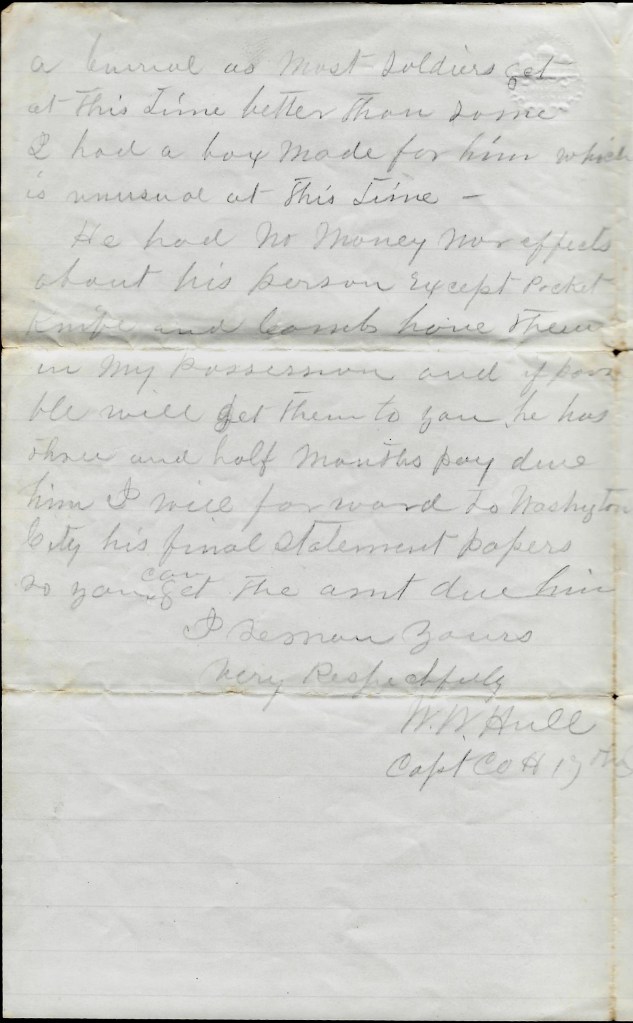 a burial as Most Soldiers get
at This Time better Than some
I had a box Made for him which
is unusual at This Time -
He had No Money Nor effects
about his person Except Pocket
Knife and Comb have Them
in My Possession and if possi
ble will get Them to you he has
Three and half Months pay due
him I will forward to Washington
City his final Statement papers
so you can get The amt due him
I remain Yours
Very Respectfully
W. W. Hull
Capt Co H 17th